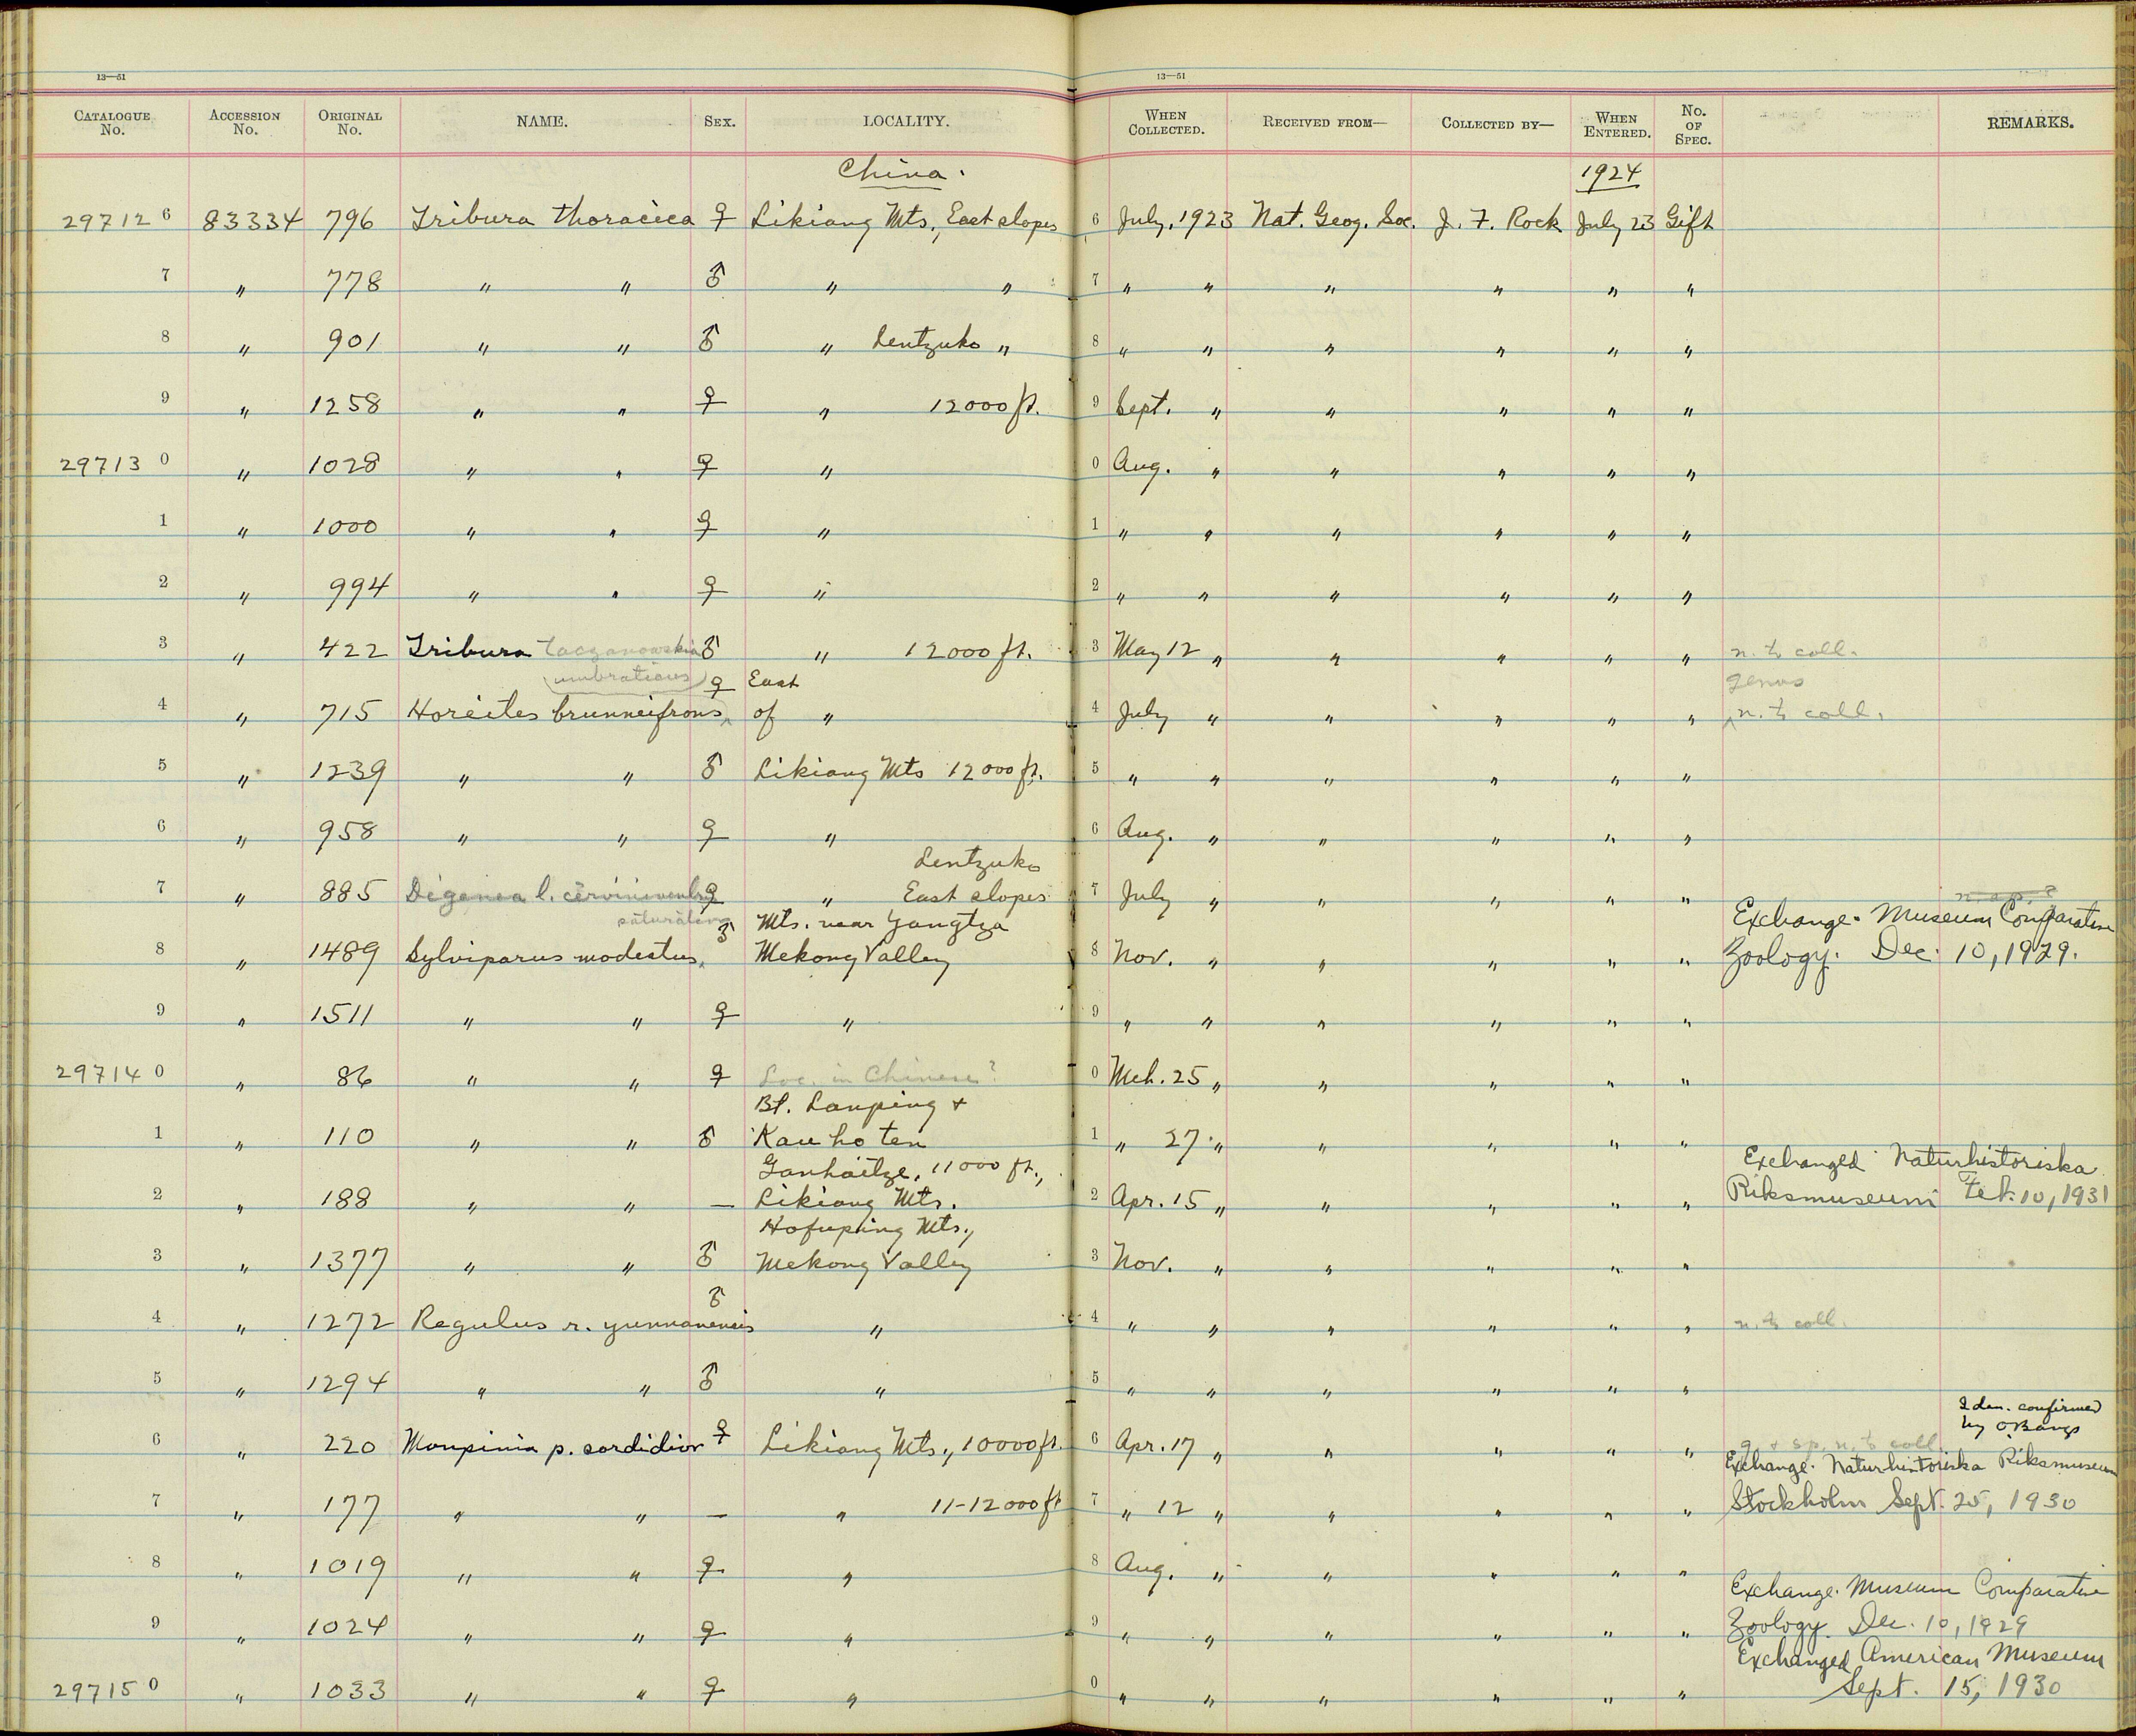 13—51 13—51
CATALOGUE No. ACCESSION No. ORIGINAL No. NAME. SEX. LOCALITY. WHEN COLLECTED. RECEIVED FROM— COLLECTED BY— WHEN ENTERED. No. OF SPEC. REMARKS.
China. 1924
29712 6 83334 796 Tribura thoracica ♀ Likiang Mts., East slopes 6 July, 1923 Nat. Geog. Soc. J. F. Rock July 23 Gift
7 " 778 " " ♂ " " 7 " " " " " "
8 " 901 " " ♂ " Lentzuko " 8 " " " " " "
9 " 1258 " " ♀ " 12000 ft. 9 Sept. " " " " "
29713 0 " 1028 " " ♀ " 0 Aug. " " " " "
1 " 1000 " " ♀ " 1 " " " " " "
2 " 994 " " ♀ " 2 " " " " " "
3 " 422 Tribura taczanowskia ♂ " 12000 ft. 3 May 12 " " " " " n. to coll.
umbraticus ♀ East genus
4 " 715 Horeites brunneifrons ^ of " 4 July " " " " " ^ n. to coll.
5 " 1239 " " ♂ Likiang Mts 12000 ft. 5 " " " " " "
6 " 958 " " ♀ " 6 Aug. " " " " "
Lentzuko
7 " 885 Digenea l. cerviniventris ♀ " East slopes 7 July " " " " " n. sp. ?
saturatior ♂ Mts. near Yangtza Exchange. Museum Comparative
8 " 1489 Sylviparus modestus ^ Mekong Valley 8 Nov. " " " " " Zoology. Dec. 10, 1929.
9 " 1511 " " ♀ " 9 " " " " " "
29714 0 " 86 " " ♀ Loc. in Chinese? 0 Mch. 25 " " " " "
Bt. Lanping +
1 " 110 " " ♂ Kau ho ten 1 " 27 " " " " "
Ganhaitze, 11000 ft., Exchanged Naturhistoriska
2 " 188 " " — Likiang Mts. 2 Apr. 15 " " " " " Riksmuseum Feb. 10, 1931
Hofuping Mts.,
3 " 1377 " " ♂ Mekong Valley 3 Nov. " " " " "
♂
4 " 1272 Regulus r. yunnanensis " 4 " " " " " " n. to coll.
5 " 1294 " " ♂ " 5 " " " " " "
Iden. confirmed
by O. Bangs
6 " 220 Moupinia p. sordidior ♀ Likiang Mts., 10000 ft. 6 Apr. 17 " " " " " g. + sp. n. to coll.
Exchange. Naturhistoriska Riksmuseum
7 " 177 " " — " 11-12000 ft 7 " 12 " " " " " Stockholm Sept. 25, 1930
8 " 1019 " " ♀ " 8 Aug. " " " " "
Exchange. Museum Comparative
9 " 1024 " " ♀ " 9 " " " " " " Zoology. Dec. 10, 1929
Exchanged American Museum
29715 0 " 1033 " " ♀ " 0 " " " " " " Sept. 15, 1930